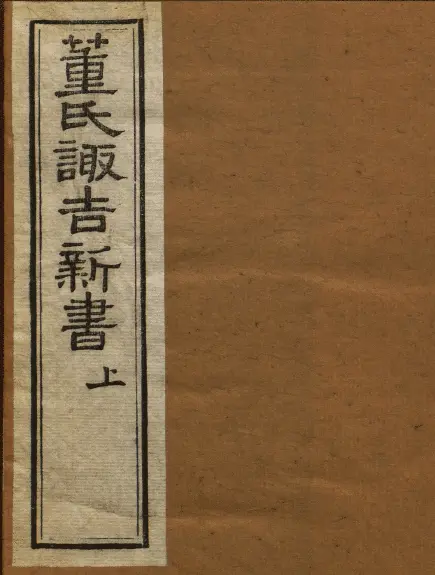 董氏諏吉新書上